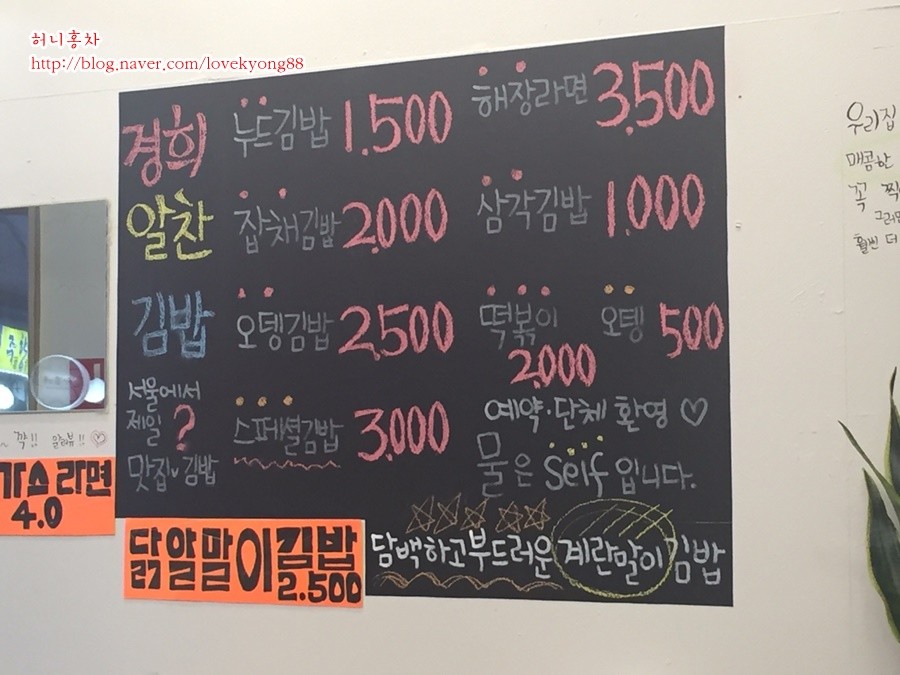 허니홍차
http://blog.naver.com/lovekyong88
경희
알찬
김밥
서울에서
제일 ?
맛집 김밥
누드김밥 1.500
잡채김밥 2.000
오뎅김밥 2.500
스페셜김밥 3.000
해장라면 3.500
삼각김밥 1.000
떡볶이 2.000
오뎅 500
예약·단체 환영 ♡
물은 self 입니다.
담백하고 부드러운 계란말이 김밥
닭알말이김밥
2.500
가스라면
4.0
꽉!!
우리집
매콤한
꼭 찍
그러면
훨씬 더